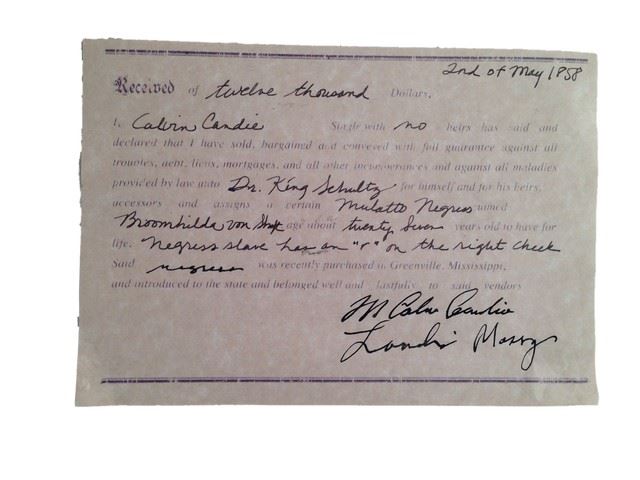 2nd of May 1858
Received of twelve thousand Dollars.
I, Calvin Candie Single with no heirs has said and
declared that I have sold, bargained and conveyed with full guarantee against all
troubles, debt, liens, mortgages, and all other incumberances and against all maladies
provided by law unto Dr. King Schultz for himself and for his heirs,
accessors and assigns a certain Mulatto Negress named
Broomhilda von age about twenty Seven years old to have for
life. Negress slave has an "r" on the right cheek
Said negress was recently purchased in Greenville, Mississippi,
and introduced to the state and belonged well and lastfully to said vendors
M Calvin Candie